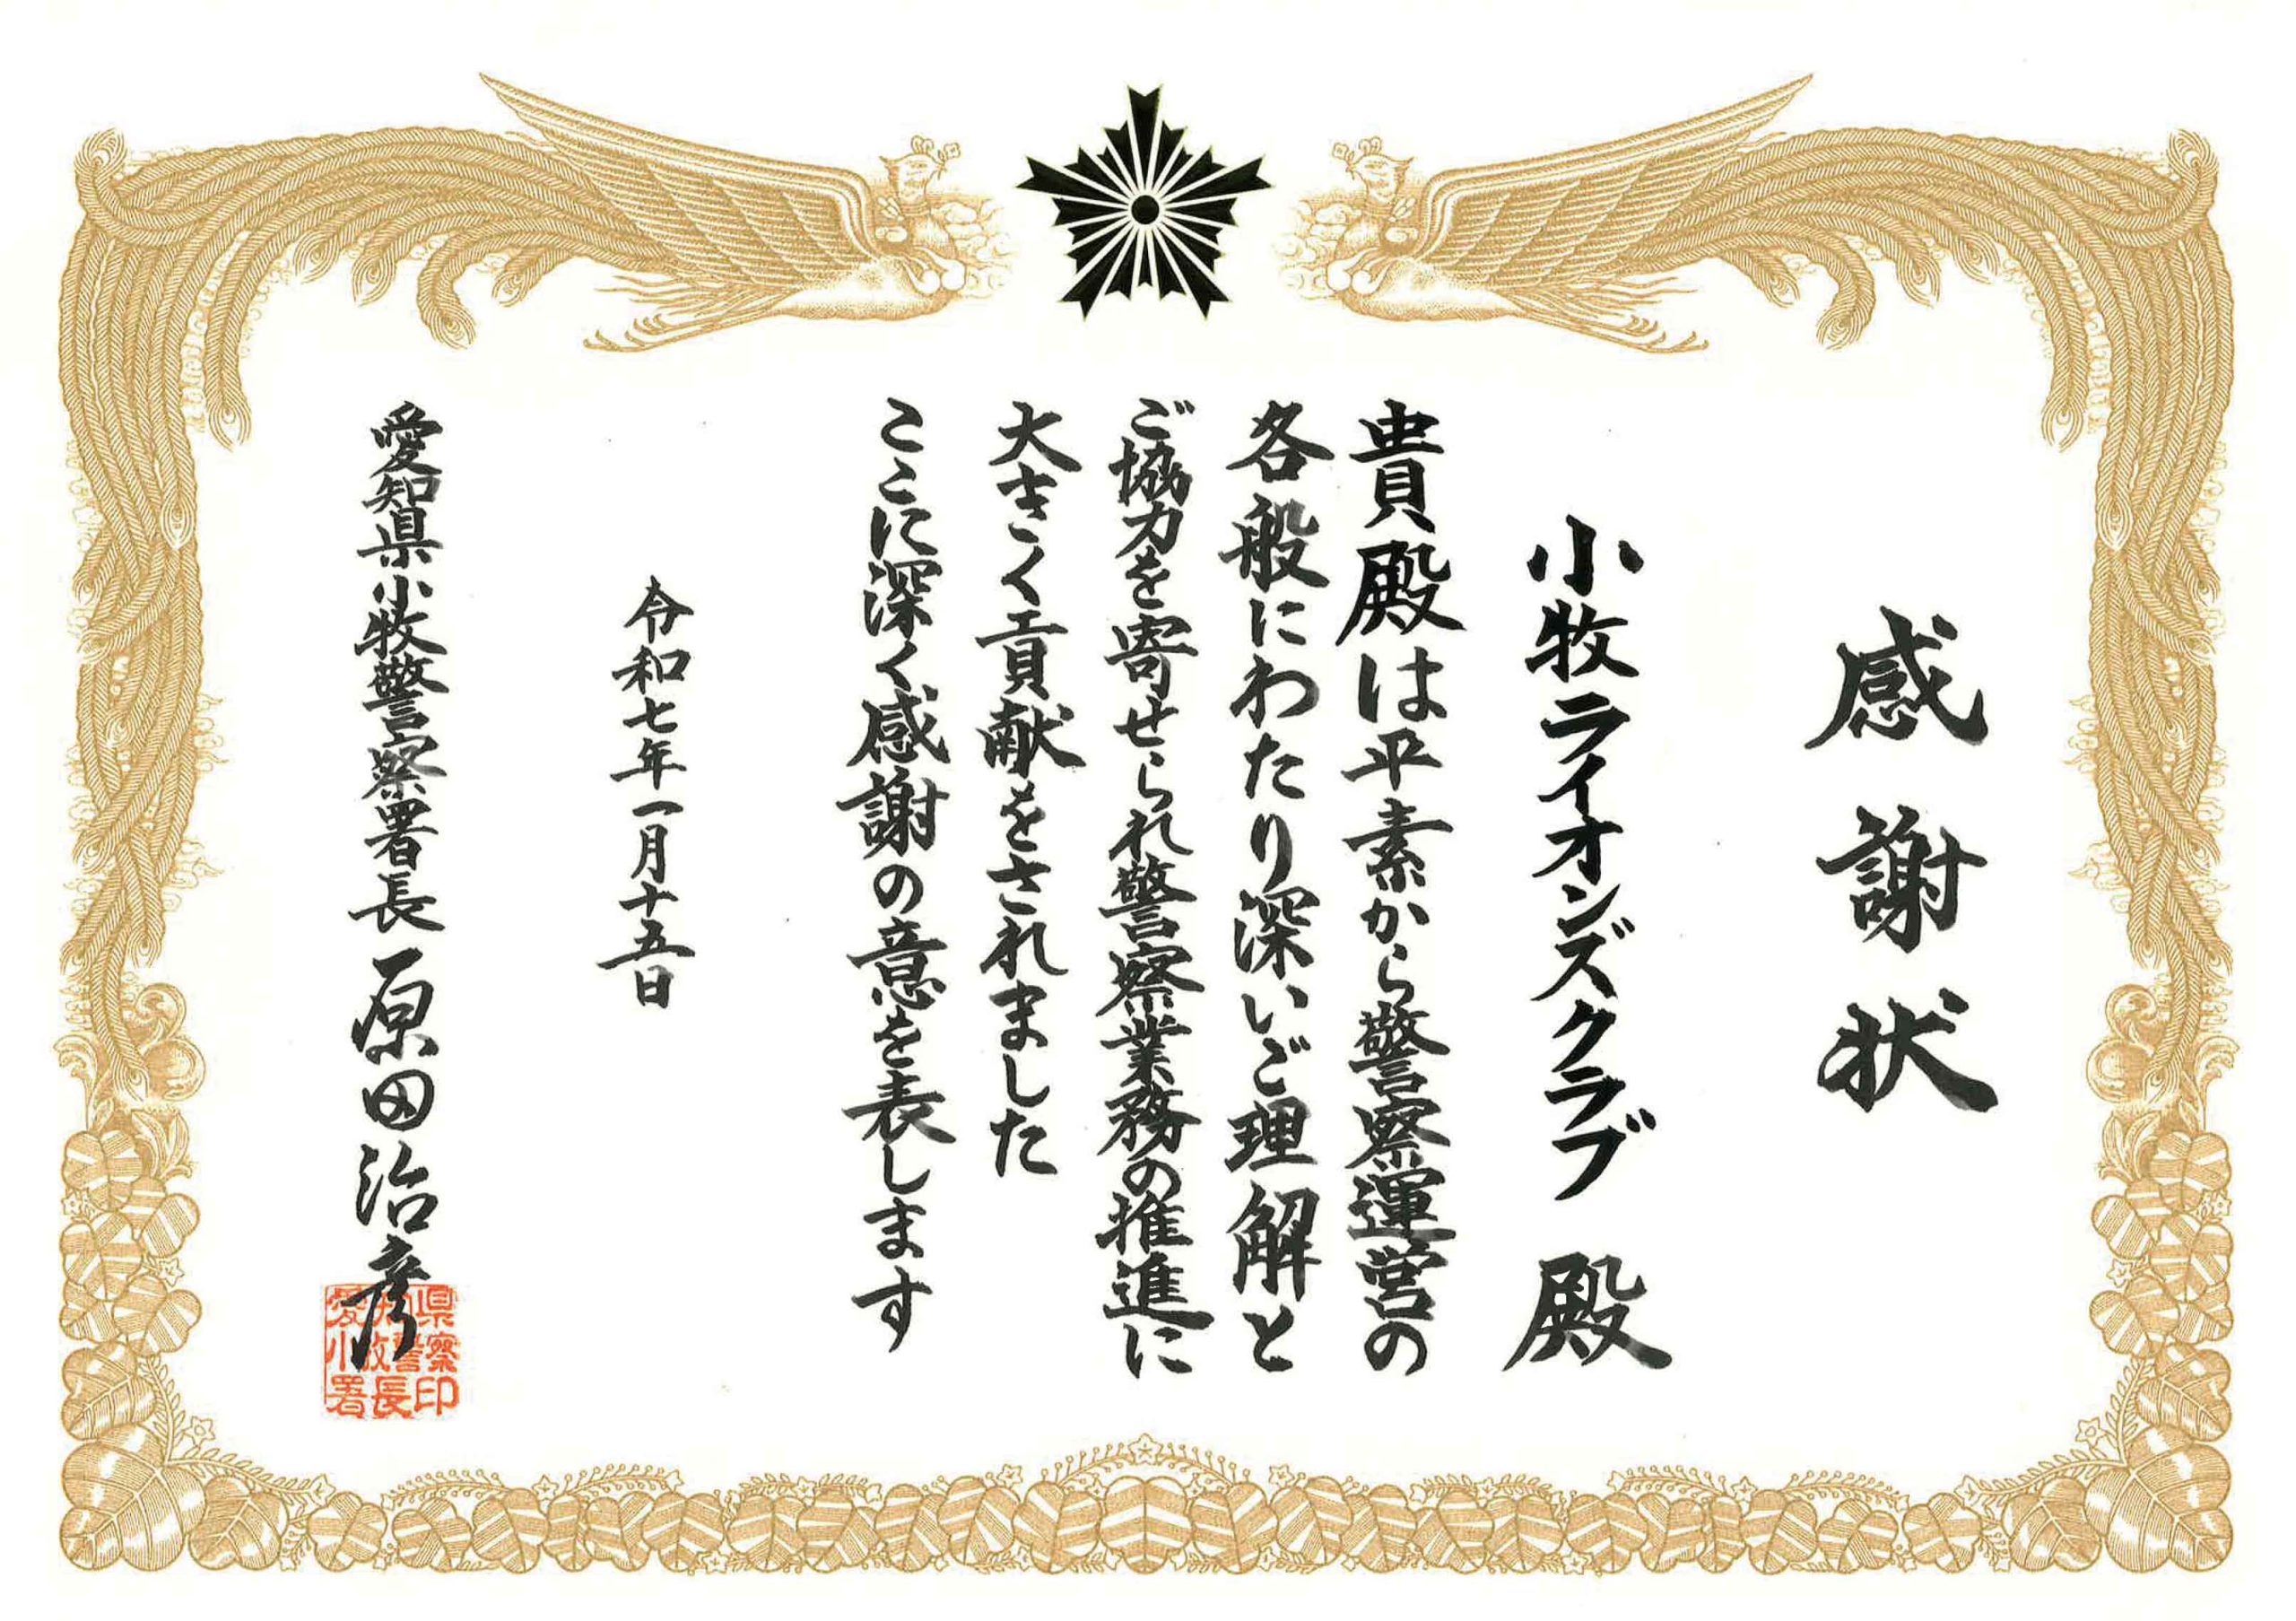 感謝状
小牧ライオンズクラブ 殿
貴殿は平素から警察運営の
各般にわたり深いご理解と
ご協力を寄せられ警察業務の推進に
大きく貢献をされました
ここに深く感謝の意を表します
令和七年一月十五日
愛知県小牧警察署長 原田治彦
県察印
知警長
愛小署